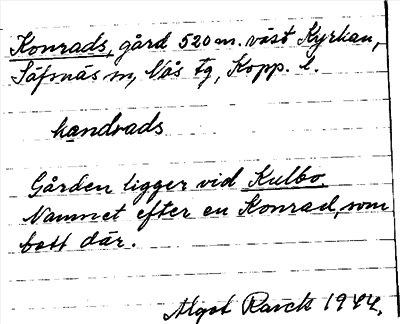 Konrads, gård 520 m. väst Kyrkan,
Säfsnäs sn, Nås tg, Kopp. l.
kọndrads
Gården ligger vid Kulbo.
Namnet efter en Konrad, som
bott där.
Algot Rarck 1944.